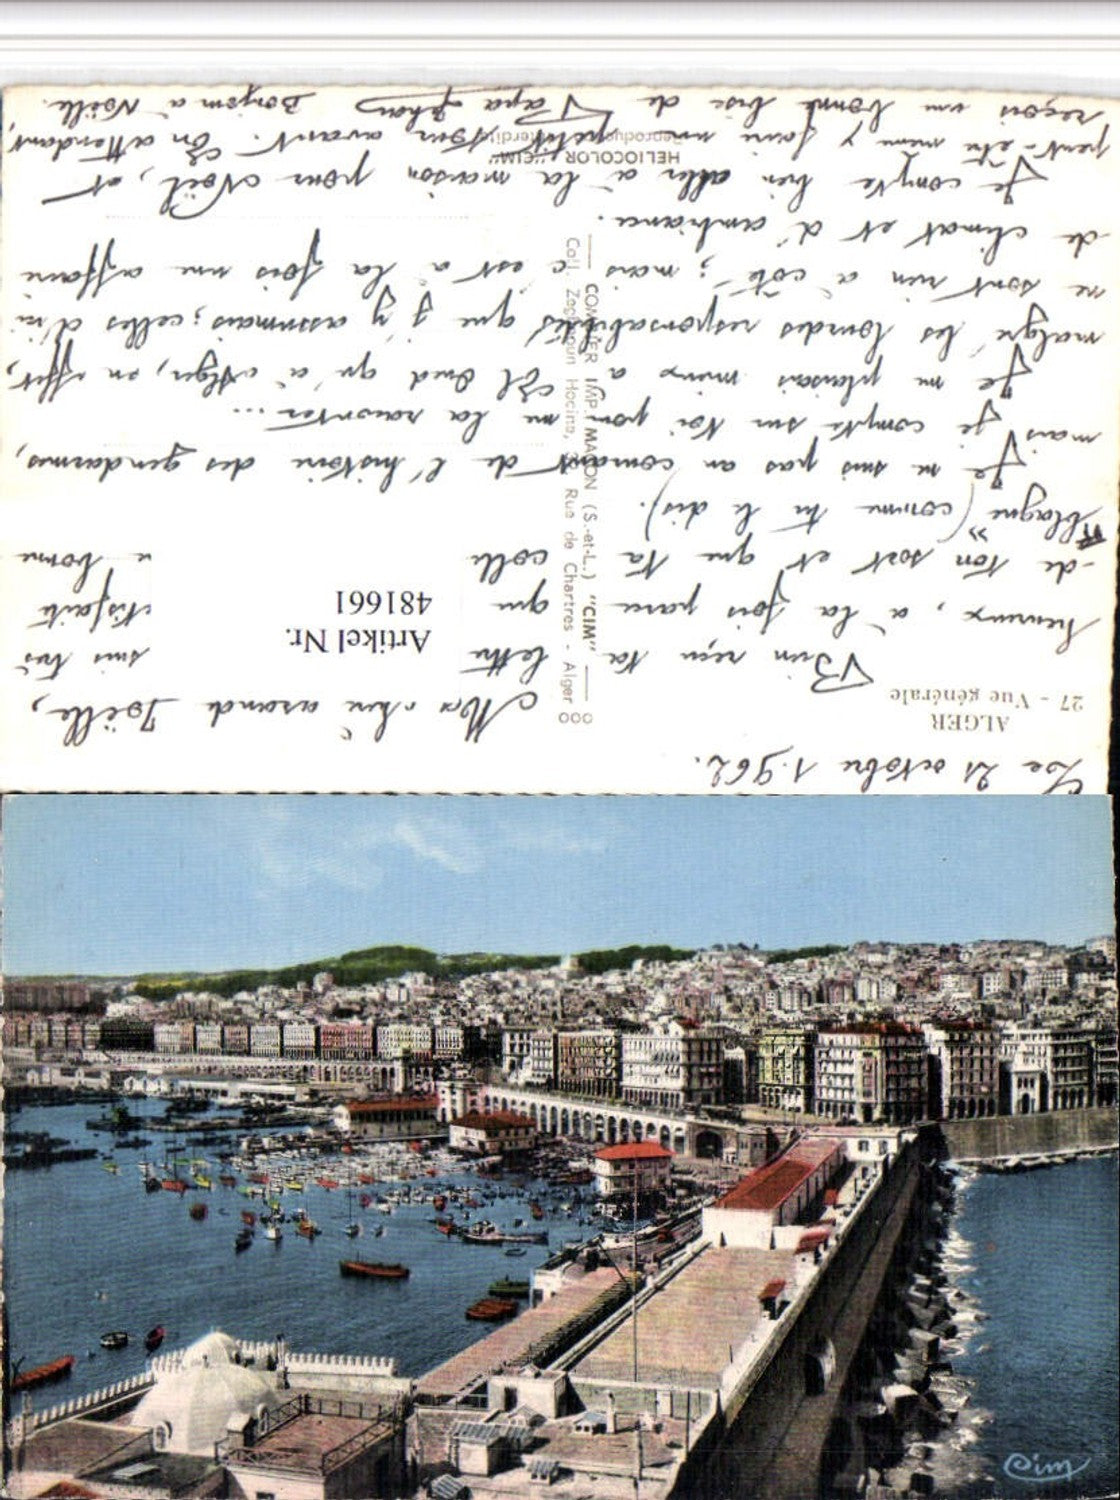 Le 21 octobre 1962.
ALGER
27 - Vue générale
Ma chère grande Joëlle,
Bien reçu ta lettre suis très
heureux, à la fois parce que
de ton sort et que ta colle bonne
blague" (comme tu le dis).
Je ne suis pas au courant de l'histoire des gendarmes,
mais je compte sur toi pour me la raconter...
Je me plaisais mieux à El Oued qu'à Alger, en effet,
malgré les lourdes responsabilités que j'y assumais; celles d'ici
ne sont rien à côté; mais c'est à la fois une affaire
de climat et d'ambiance.
Je compte bien aller à la maison pour Noël, et
peut-être même y faire un petit tour avant. En attendant,
reçois une bonne bise de Papa Bonjour à Noëlle.
Artikel Nr.
481661
COMBIER IMP. MACON (S.-et-L.) "CIM"
Coll. Hocine, Rue de Chartres - Alger
HELIOCOLOR "CIM"
Reproduction interdite
Cim